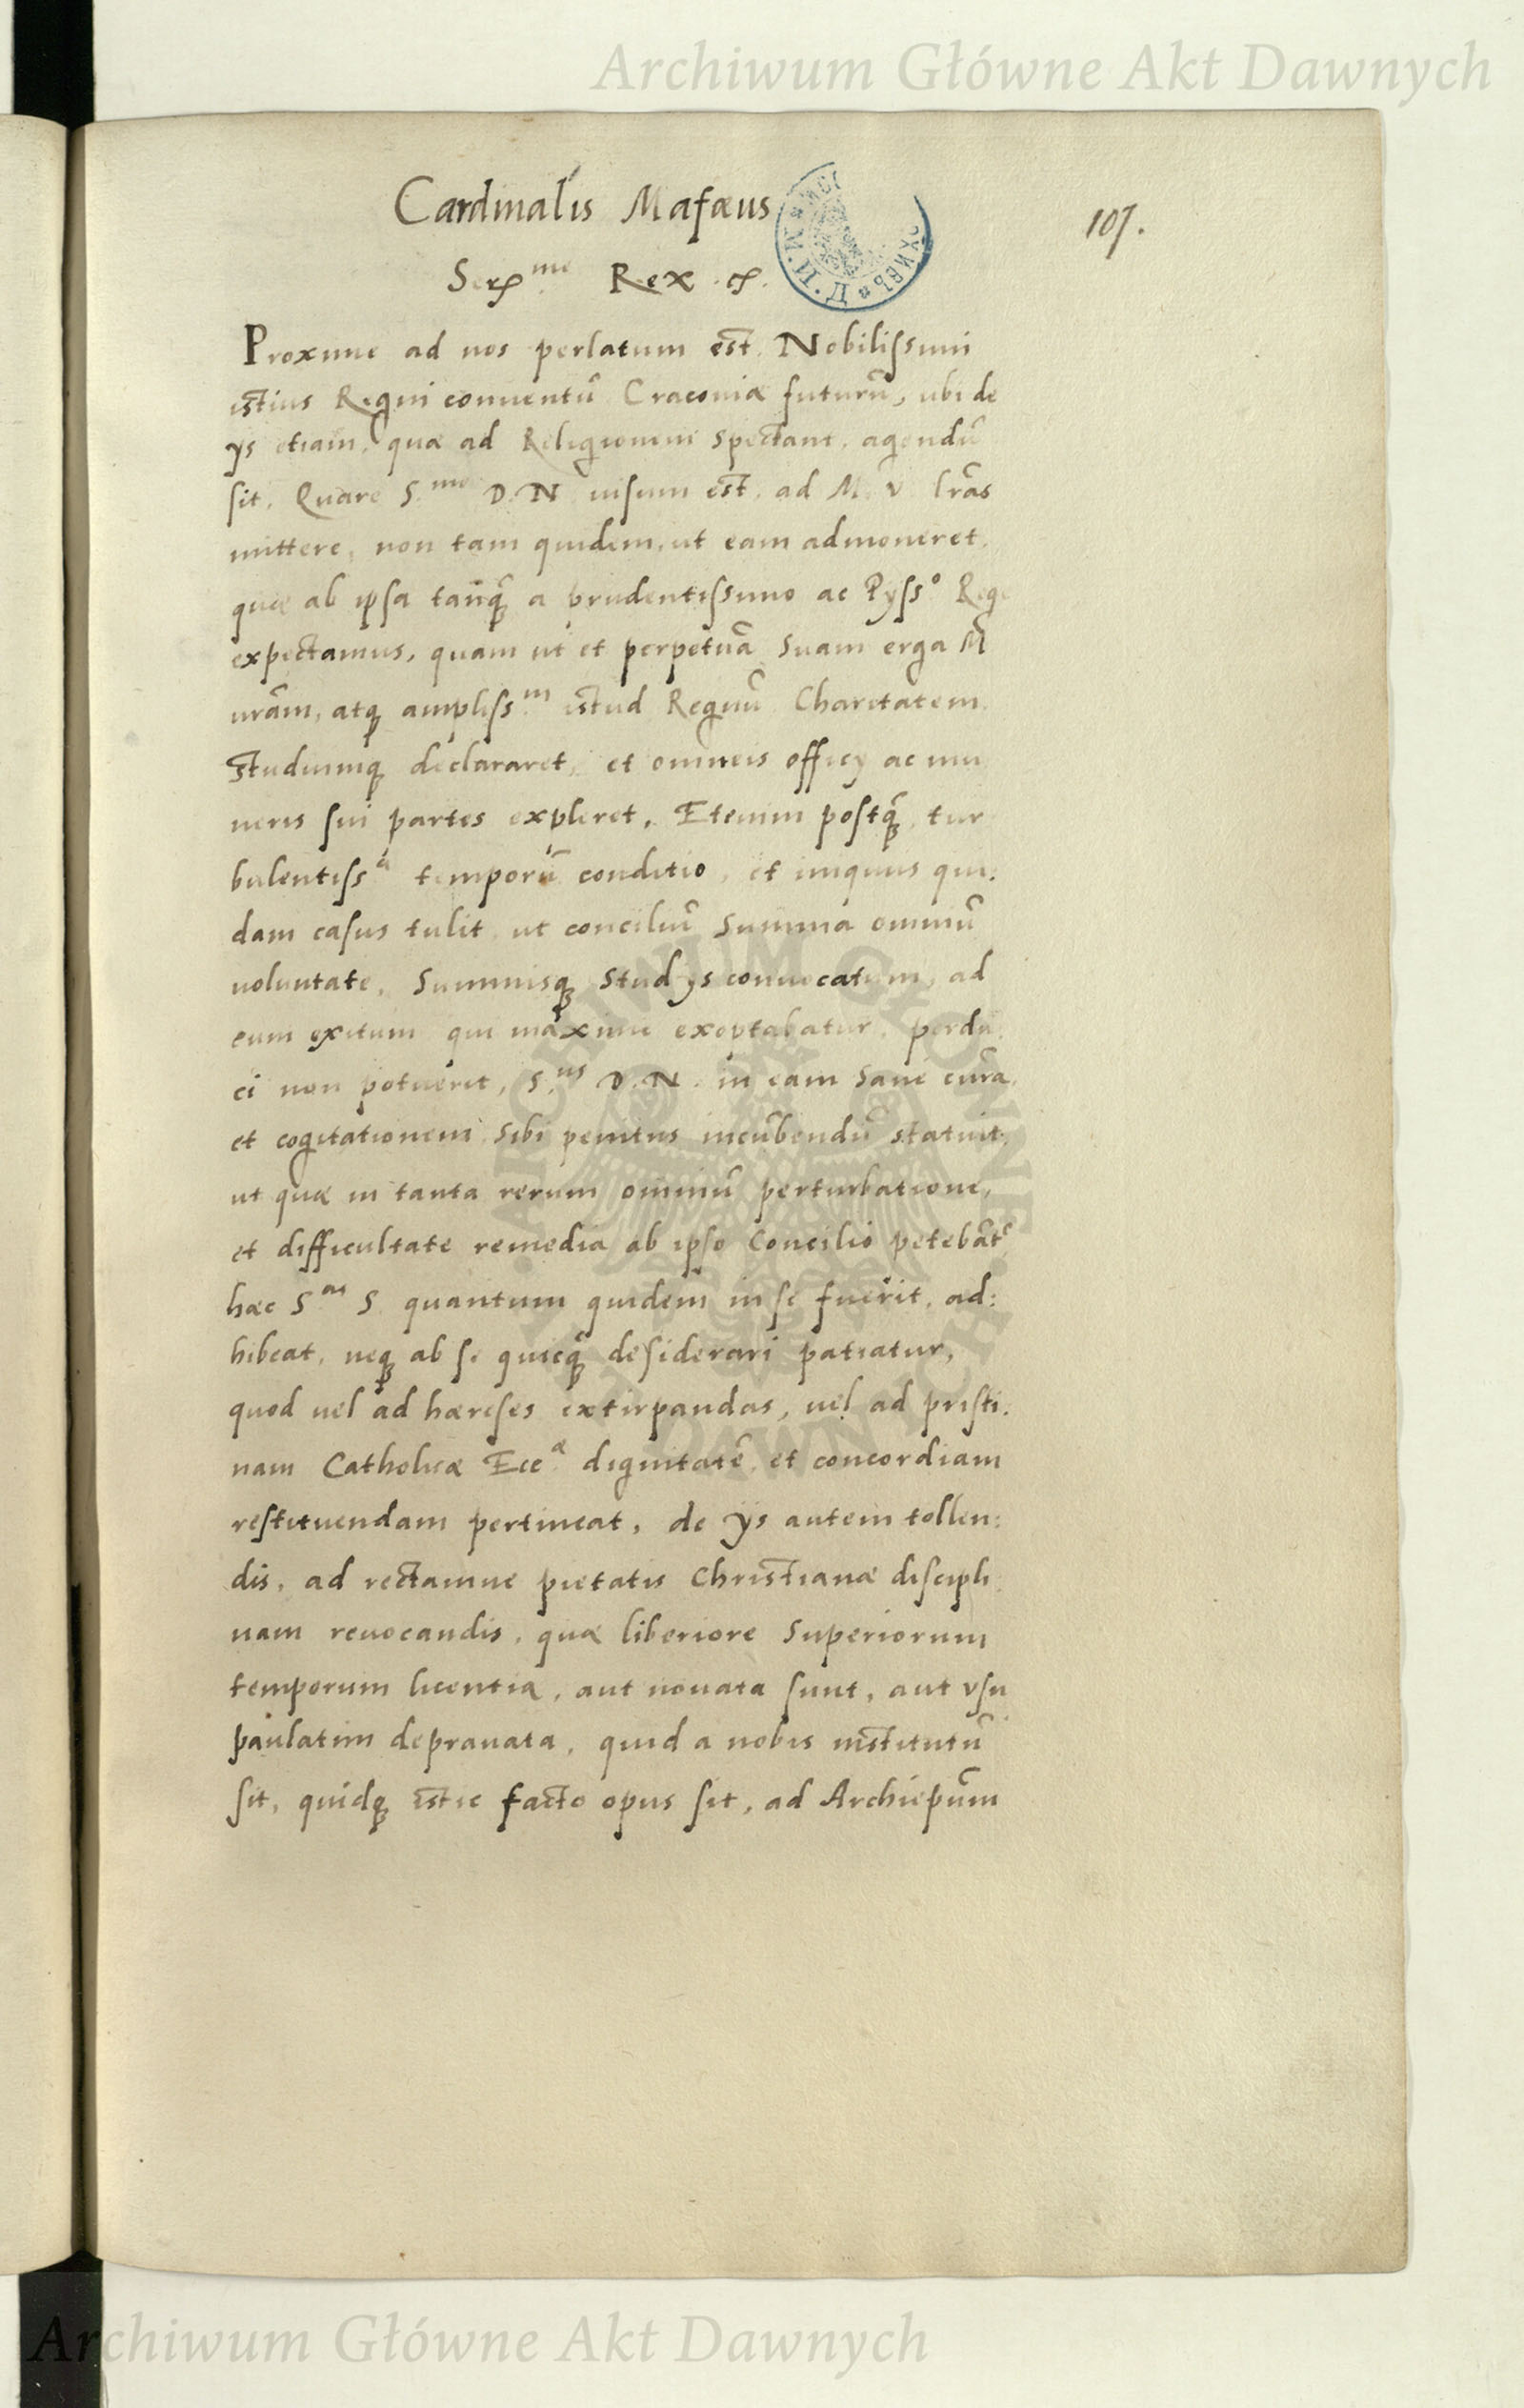 Archiwum Główne Akt Dawnych
Cardinalis Mafæus
107.
Ser.me Rex etc.
Proxime ad nos perlatum est. Nobilissimi
istius Regni conuentũ Craconiæ futurũ, ubi de
ijs etiam, quæ ad Religionem spectant, agendũ
sit. Quare S.mo D. N. uisum est, ad M. V. lr̃as
mittere, non tam quidem, ut eam admoneret,
quæ ab ipsa tanq̃ a prudentissimo ac Pijss.o Rege
expectamus, quam ut et perpetuã suam erga M̃
ur̃am, atq ampliss.m istud Regnũ Charitatem
Studiumq declararet, et omneis officij ac mu
neris sui partes expleret. Etenim postq̃ tur
bulentiss.a temporũ conditio, et iniquus qui:
dam casus tulit, ut conciliũ Summa omniũ
uoluntate, Summisq Studijs conuocatum, ad
eum exitum qui maxime exoptabatur, perdu
ci non potuerit, S.us D. N. in eam sane curã,
et cogitationem sibi penitus incũbendũ statuit,
ut quæ in tanta rerum omniũ perturbatione,
et difficultate remedia ab ipso Concilio petebãt
hæc S.as S. quantum quidem in se fuerit, ad:
hibeat, neq ab se quicq̃ desiderari patiatur,
quod uel ad hæreses extirpandas, uel ad pristi:
nam Catholicæ Ecc.æ dignitatẽ et concordiam
restituendam pertineat, de ijs autem tollen:
dis, ad rectamue pietatis Christianæ discipli
nam reuocandis, quæ liberiore Superiorum
temporum licentia, aut nouata sunt, aut vsu
paulatim deprauata, quid a nobis institutũ
sit, quidq istic facto opus sit, ad Archiepũm
Archiwum Główne Akt Dawnych